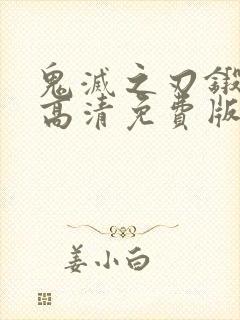 鬼滅之刃鍛
高清免費版
姜小白